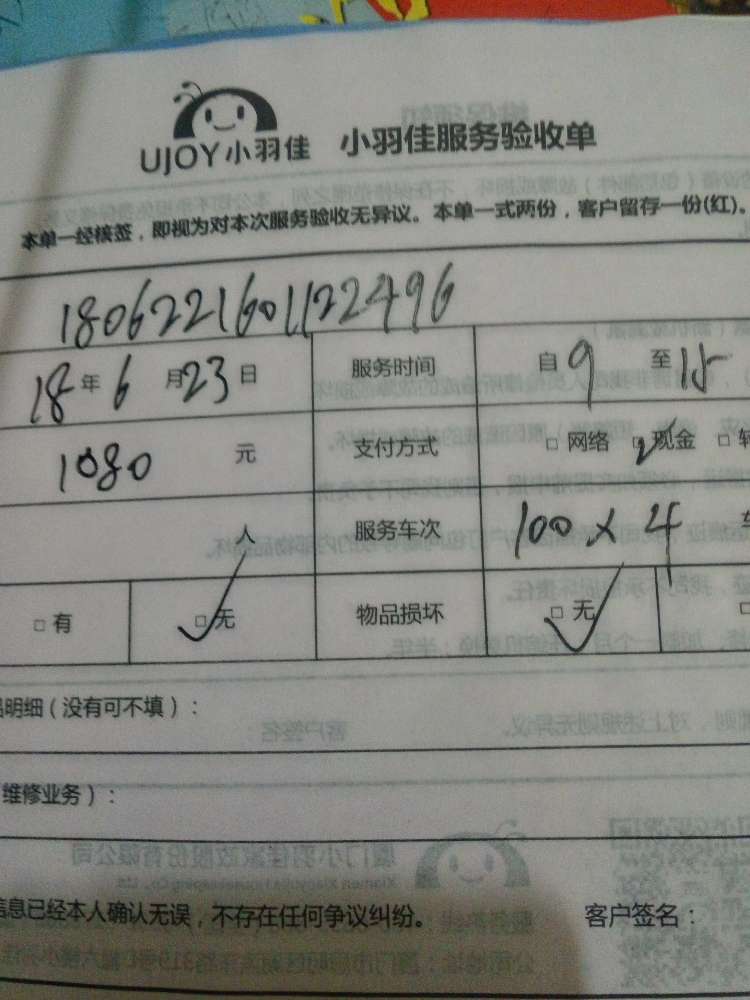 UJOY小羽佳 小羽佳服务验收单
本单一经核签，即视为对本次服务验收无异议。本单一式两份，客户留存一份(红)。
1806221601122496
18年6月23日 服务时间 自9至15
1080元 支付方式 □网络 ☑现金 □转
人 服务车次 100×4
□有 ☑无 物品损坏 ☑无 □
明细（没有可不填）：
维修业务）：
信息已经本人确认无误，不存在任何争议纠纷。 客户签名：